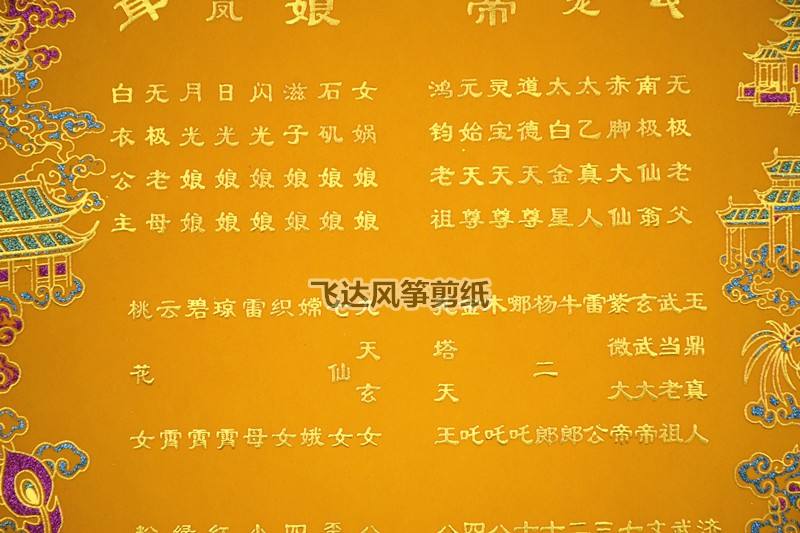 龙
帝
娘
凤
无极老父
南极仙翁
赤脚大仙
太乙真人
太白金星
道德天尊
灵宝天尊
元始天尊
鸿钧老祖
女娲娘娘
石矶娘娘
滋子娘娘
闪光娘娘
日光娘娘
月光娘娘
无极老母
白衣公主
飞达风筝剪纸
玉鼎真人
武当老祖
玄武大帝
紫微大帝
雷公
牛郎
杨二郎
哪吒
木吒
金吒
塔天王
天玄女
仙女
嫦娥
织女
雷母
琼霄
碧霄
云霄
桃花女